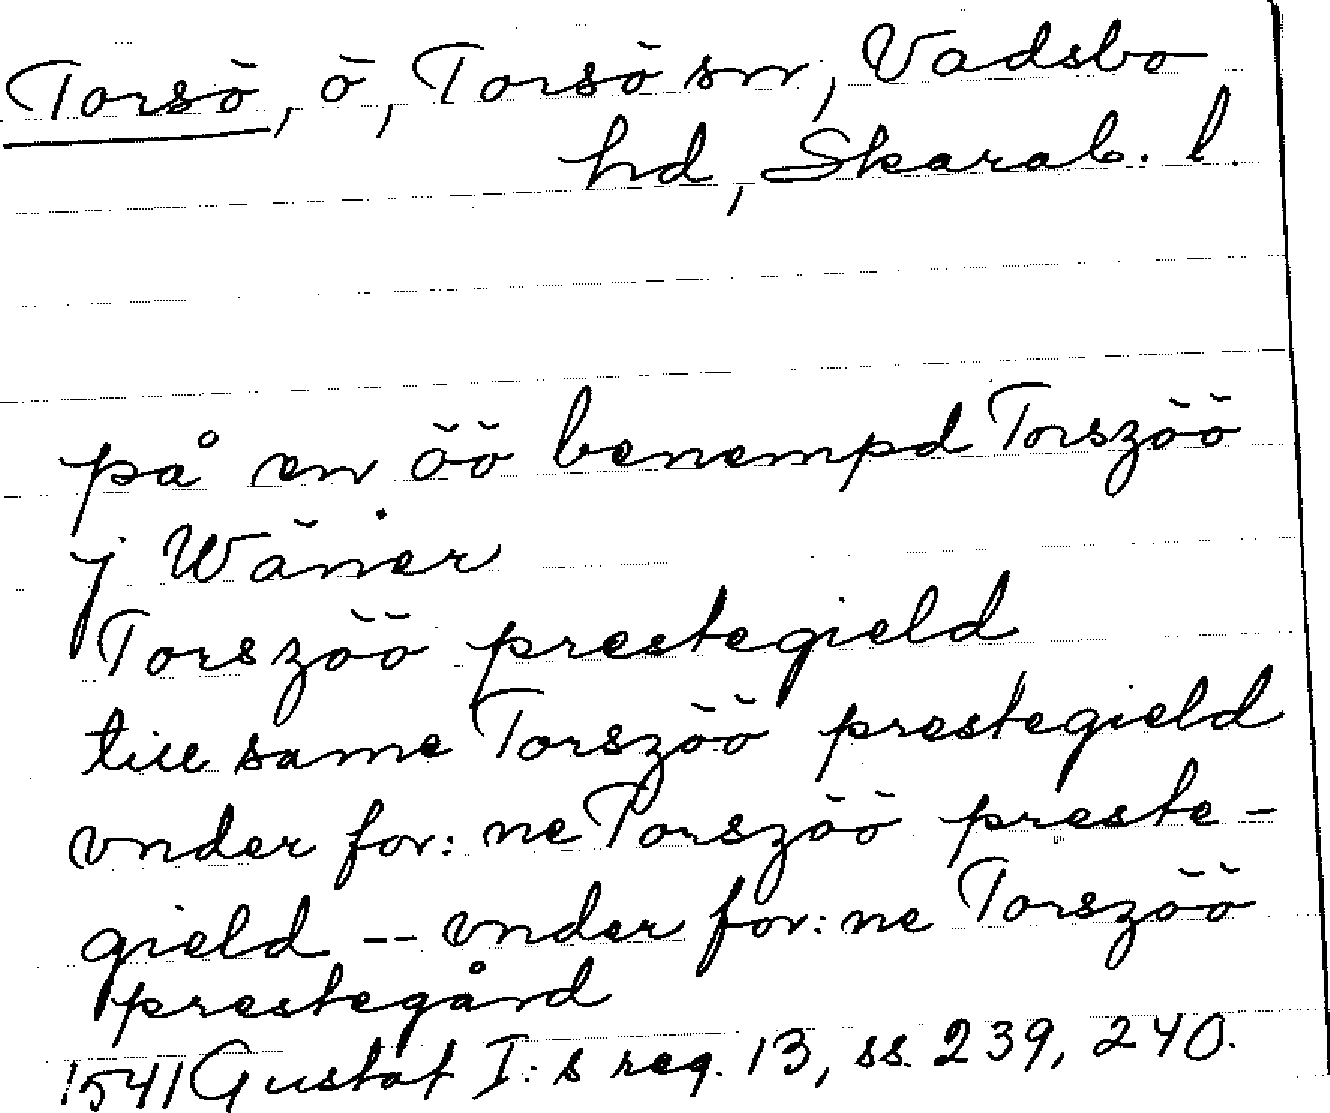 Torsö, ö, Torsö sn, Vadsbo
hd, Skarab. l.
på en öö benempd Torszöö
j Wäner
Torszöö prestegield
till same Torszöö prestegield
vnder for:ne Torszöö preste-
gield -- vnder for:ne Torszöö
prestegård
1541 Gustaf I:s reg. 13, ss. 239, 240.